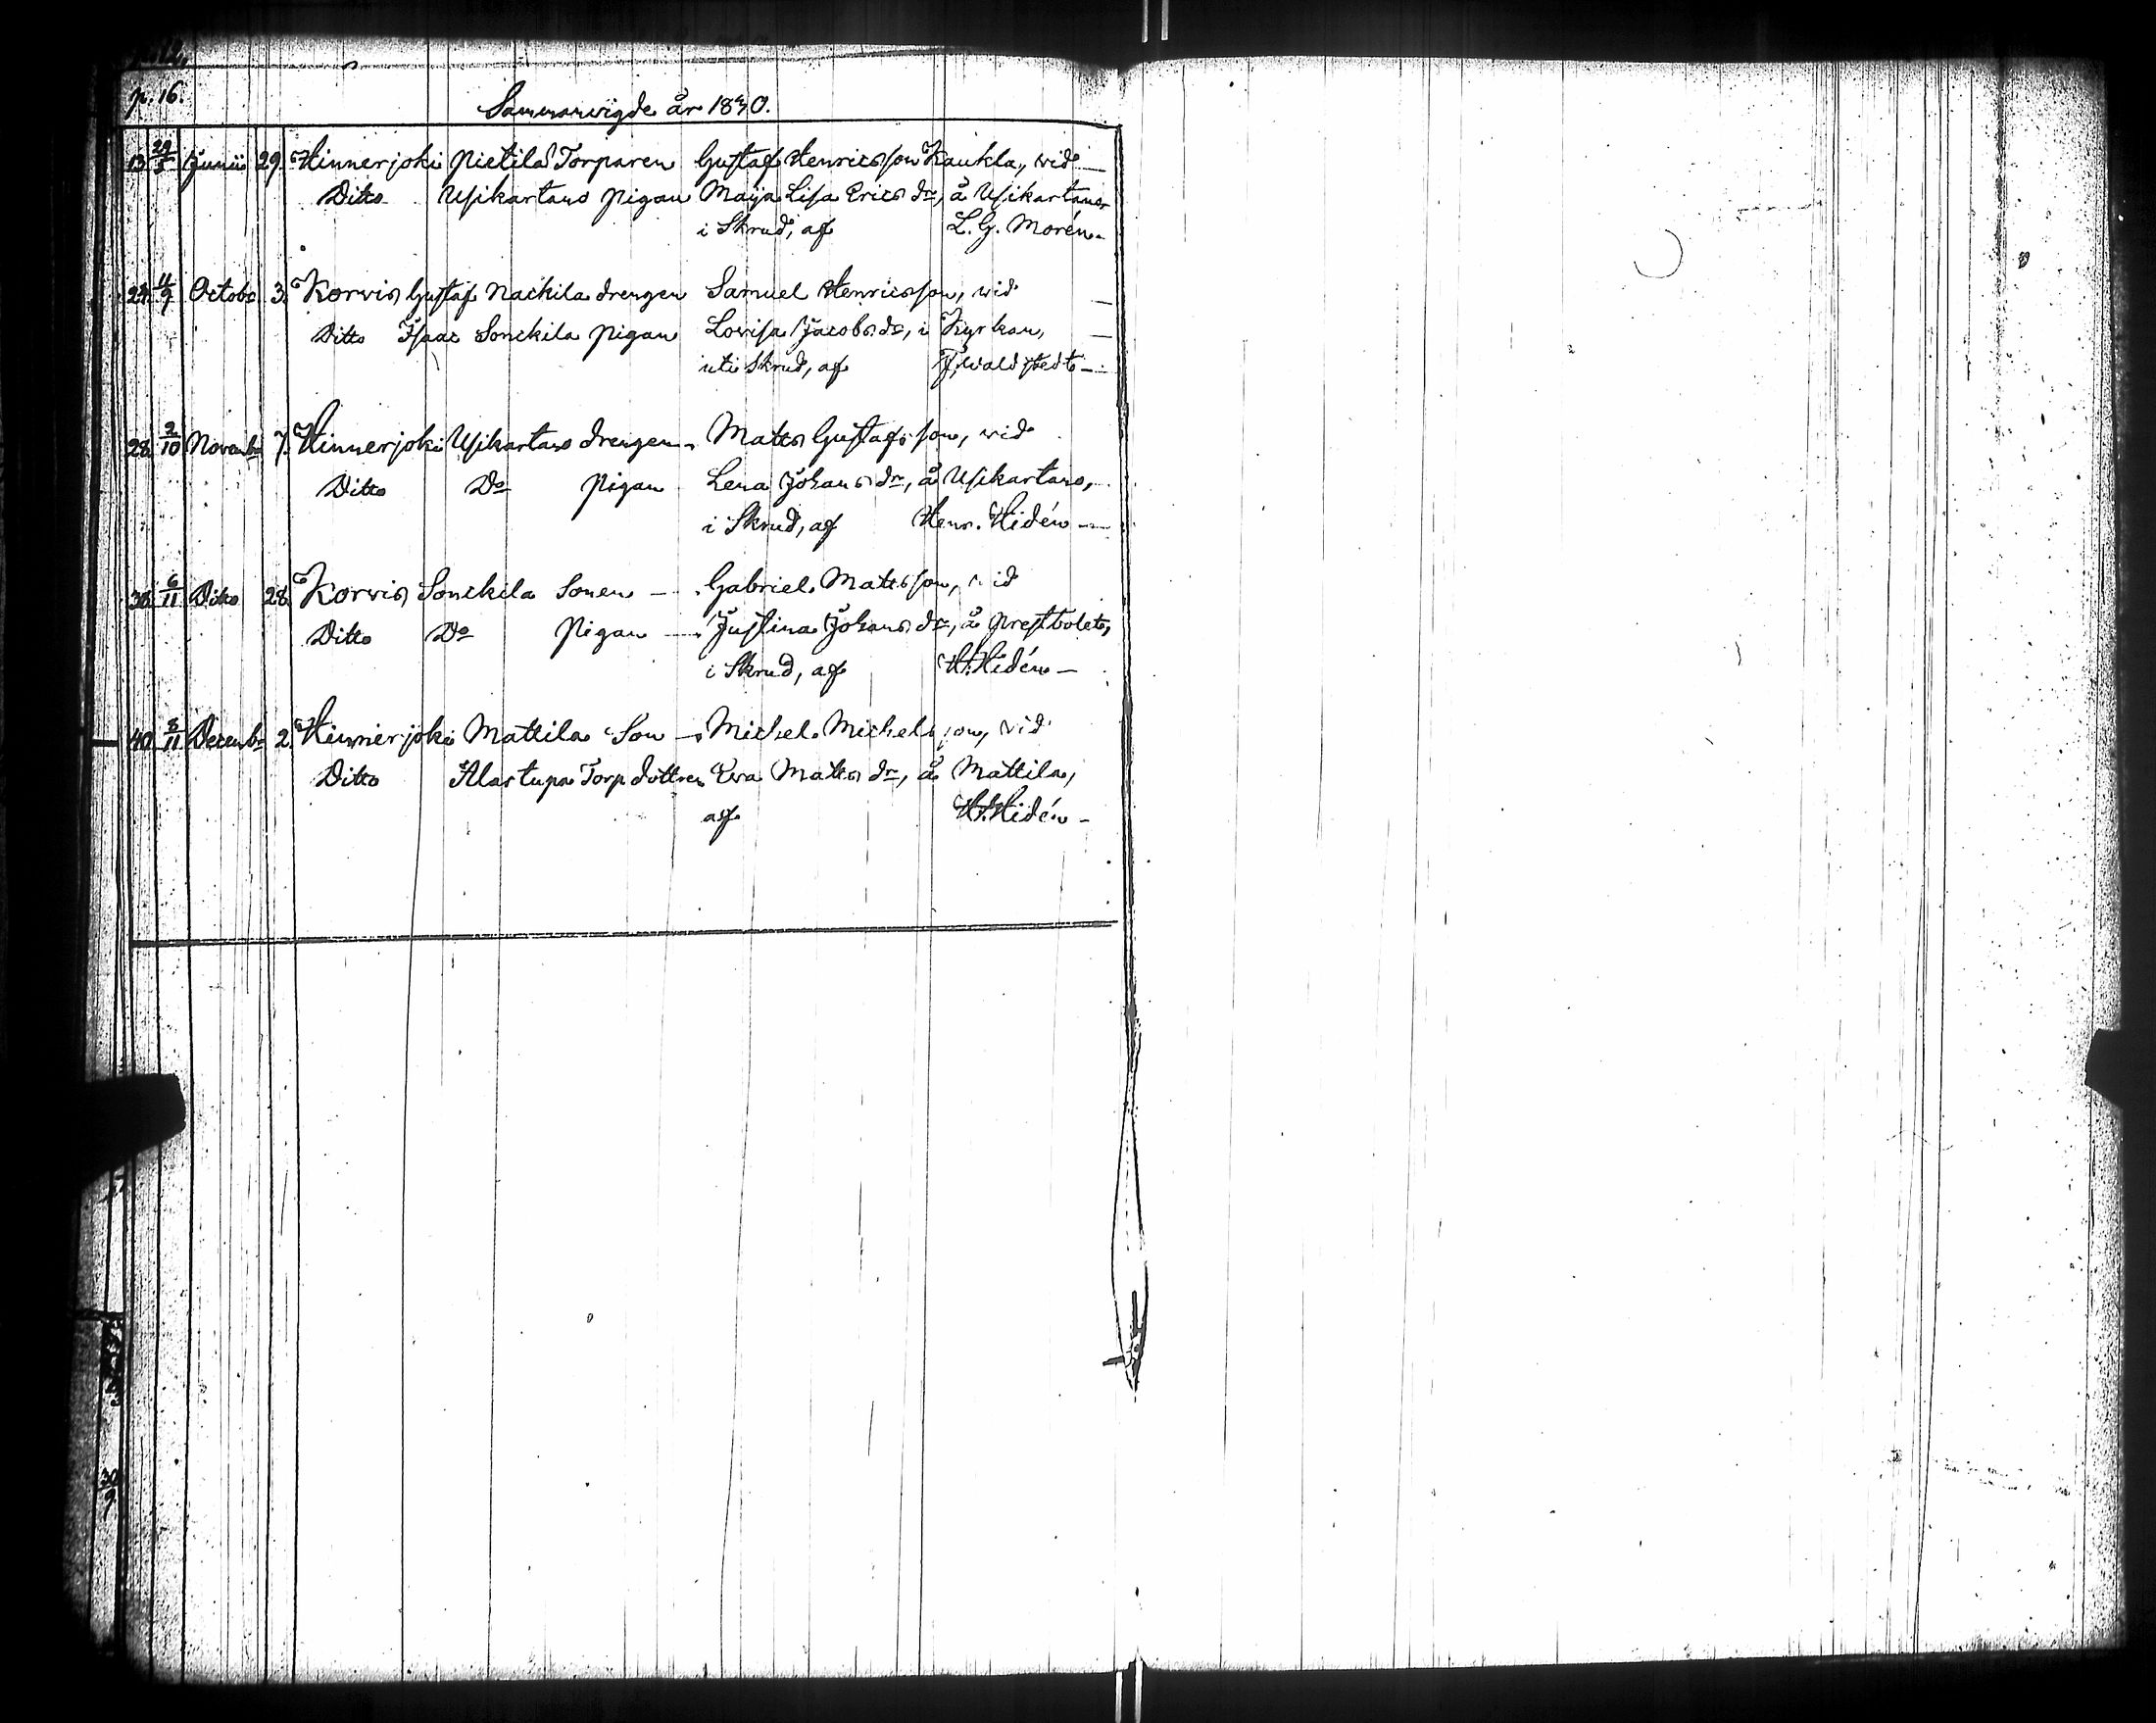 p. 16.
Sammanwigde år 1840.
13. 29/5 Junii 29. Hinnerjoki Pietilä Torparen Gustaf Henricsson Kaukla, wid
Ditto Usikartano Pigan Maija Lisa Erics dr, å Usikartano
i Skrud, af L. G. Morén.
24. 4/9 Octobr 3. Korvis Gustaf Nackila drengen Samuel Henricsson, wid
Ditto Isaac Sonckila Pigan Lovisa Jacobs dr, i Kyrkan,
uti Skrud, af F. Waldstedt
28. 2/10 Novembr 7. Hinnerjoki Usikartano drengen Matts Gustafsson, wid
Ditto Do Pigan Lena Johans dr, å Usikartano,
i Skrud, af Henr. Hidén
38. 6/11 Ditto 28. Korvis Sonckila Sonen Gabriel Mattsson, wid
Ditto Do Pigan Justina Johans dr, å Prestbolet,
i Skrud, af H. Hidén
40. 8/11 Decembr 2. Hinnerjoki Mattila Son Michel Michelsson, wid
Ditto Alastupa Torp dottren Eva Matts dr, å Mattila,
af H. Hidén
30/9